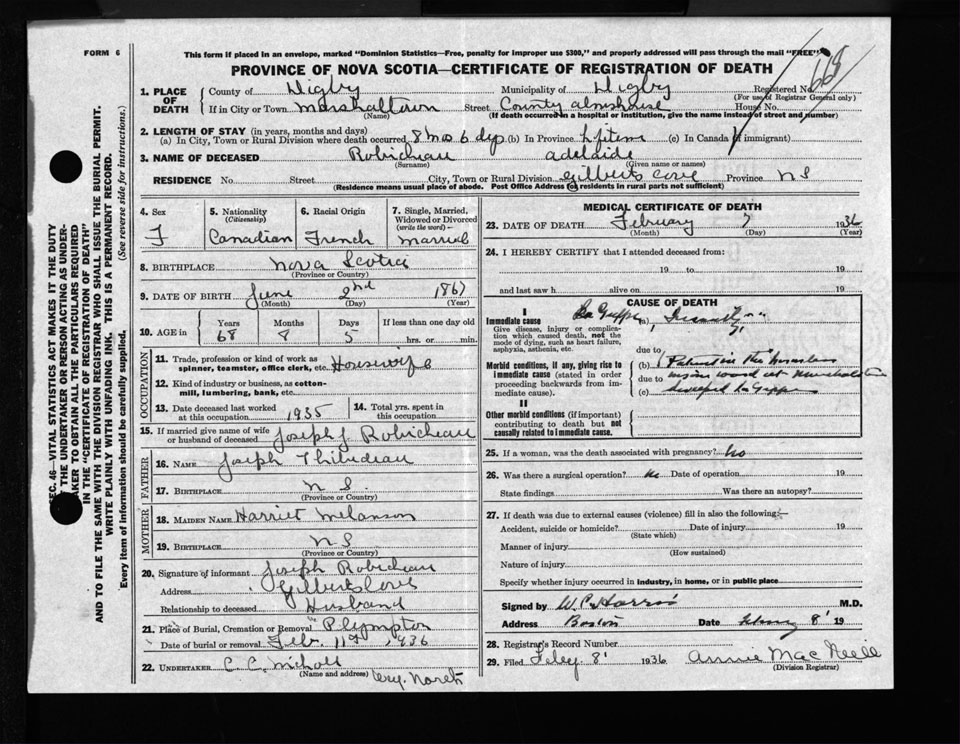 FORM 6
This form if placed in an envelope, marked "Dominion Statistics—Free, penalty for improper use $300," and properly addressed will pass through the mail "FREE"
PROVINCE OF NOVA SCOTIA—CERTIFICATE OF REGISTRATION OF DEATH
668
1. PLACE OF DEATH
County of Digby Municipality of Digby Registered No.
(For use of Registrar General only)
If in City or Town Marshalltown Street County almshouse House No.
(Name) (If death occurred in a hospital or institution, give the name instead of street and number)
2. LENGTH OF STAY (in years, months and days)
(a) In City, Town or Rural Division where death occurred 8 mos 6 dys (b) In Province Lifetime (c) In Canada (if immigrant)
3. NAME OF DECEASED Robicheau adelaide
(Surname) (Given name or names)
RESIDENCE No. Street City, Town or Rural Division Gilberts Cove Province N S
(Residence means usual place of abode. Post Office Address for residents in rural parts not sufficient)
4. Sex
F
5. Nationality
(Citizenship)
Canadian
6. Racial Origin
French
7. Single, Married, Widowed or Divorced
(write the word)
married
8. BIRTHPLACE Nova Scotia
(Province or Country)
9. DATE OF BIRTH June 2nd 1867
(Month) (Day) (Year)
10. AGE in
Years Months Days If less than one day old
68 8 5 hrs. or min.
OCCUPATION
11. Trade, profession or kind of work as spinner, teamster, office clerk, etc. Housewife
12. Kind of industry or business, as cotton-mill, lumbering, bank, etc.
13. Date deceased last worked at this occupation 1935
14. Total yrs. spent in this occupation
15. If married give name of wife or husband of deceased Joseph J. Robicheau
FATHER
16. NAME Joseph Thibideau
17. BIRTHPLACE N S
(Province or Country)
MOTHER
18. MAIDEN NAME Harriet Melanson
19. BIRTHPLACE N S
(Province or Country)
20. Signature of informant Joseph Robicheau
Address Gilberts Cove
Relationship to deceased Husband
21. Place of Burial, Cremation or Removal Plympton
Date of burial or removal Feb. 11th 1936
22. UNDERTAKER C. C. Nicholl
(Name and address)
MEDICAL CERTIFICATE OF DEATH
23. DATE OF DEATH February 7 1936
(Month) (Day) (Year)
24. I HEREBY CERTIFY that I attended deceased from:
19 to 19
and last saw h alive on 19
CAUSE OF DEATH
I
Immediate cause
Give disease, injury or complication which caused death, not the mode of dying, such as heart failure, asphyxia, asthenia, etc.
La Grippe (a)
due to
Morbid conditions, if any, giving rise to immediate cause (stated in order proceeding backwards from immediate cause).
(b) Patient in the
due to
(c) La Grippe
II
Other morbid conditions (if important) contributing to death but not causally related to immediate cause.
25. If a woman, was the death associated with pregnancy? No
26. Was there a surgical operation? No Date of operation 19
State findings Was there an autopsy?
27. If death was due to external causes (violence) fill in also the following:—
Accident, suicide or homicide? Date of injury 19
(State which)
Manner of injury
(How sustained)
Nature of injury
Specify whether injury occurred in industry, in home, or in public place
Signed by W. C. Harris M.D.
Address Date 8' 19
28. Registrar's Record Number
29. Filed Feby. 8' 1936 Annie MacNeill
(Division Registrar)
SEC. 46—VITAL STATISTICS ACT MAKES IT THE DUTY OF THE UNDERTAKER OR PERSON ACTING AS UNDERTAKER TO OBTAIN ALL THE PARTICULARS REQUIRED IN THE "CERTIFICATE OF REGISTRATION OF DEATH" AND TO FILE THE SAME WITH THE DIVISION REGISTRAR WHO SHALL ISSUE THE BURIAL PERMIT.
WRITE PLAINLY WITH UNFADING INK. THIS IS A PERMANENT RECORD.
Every item of information should be carefully supplied. (See reverse side for instructions.)